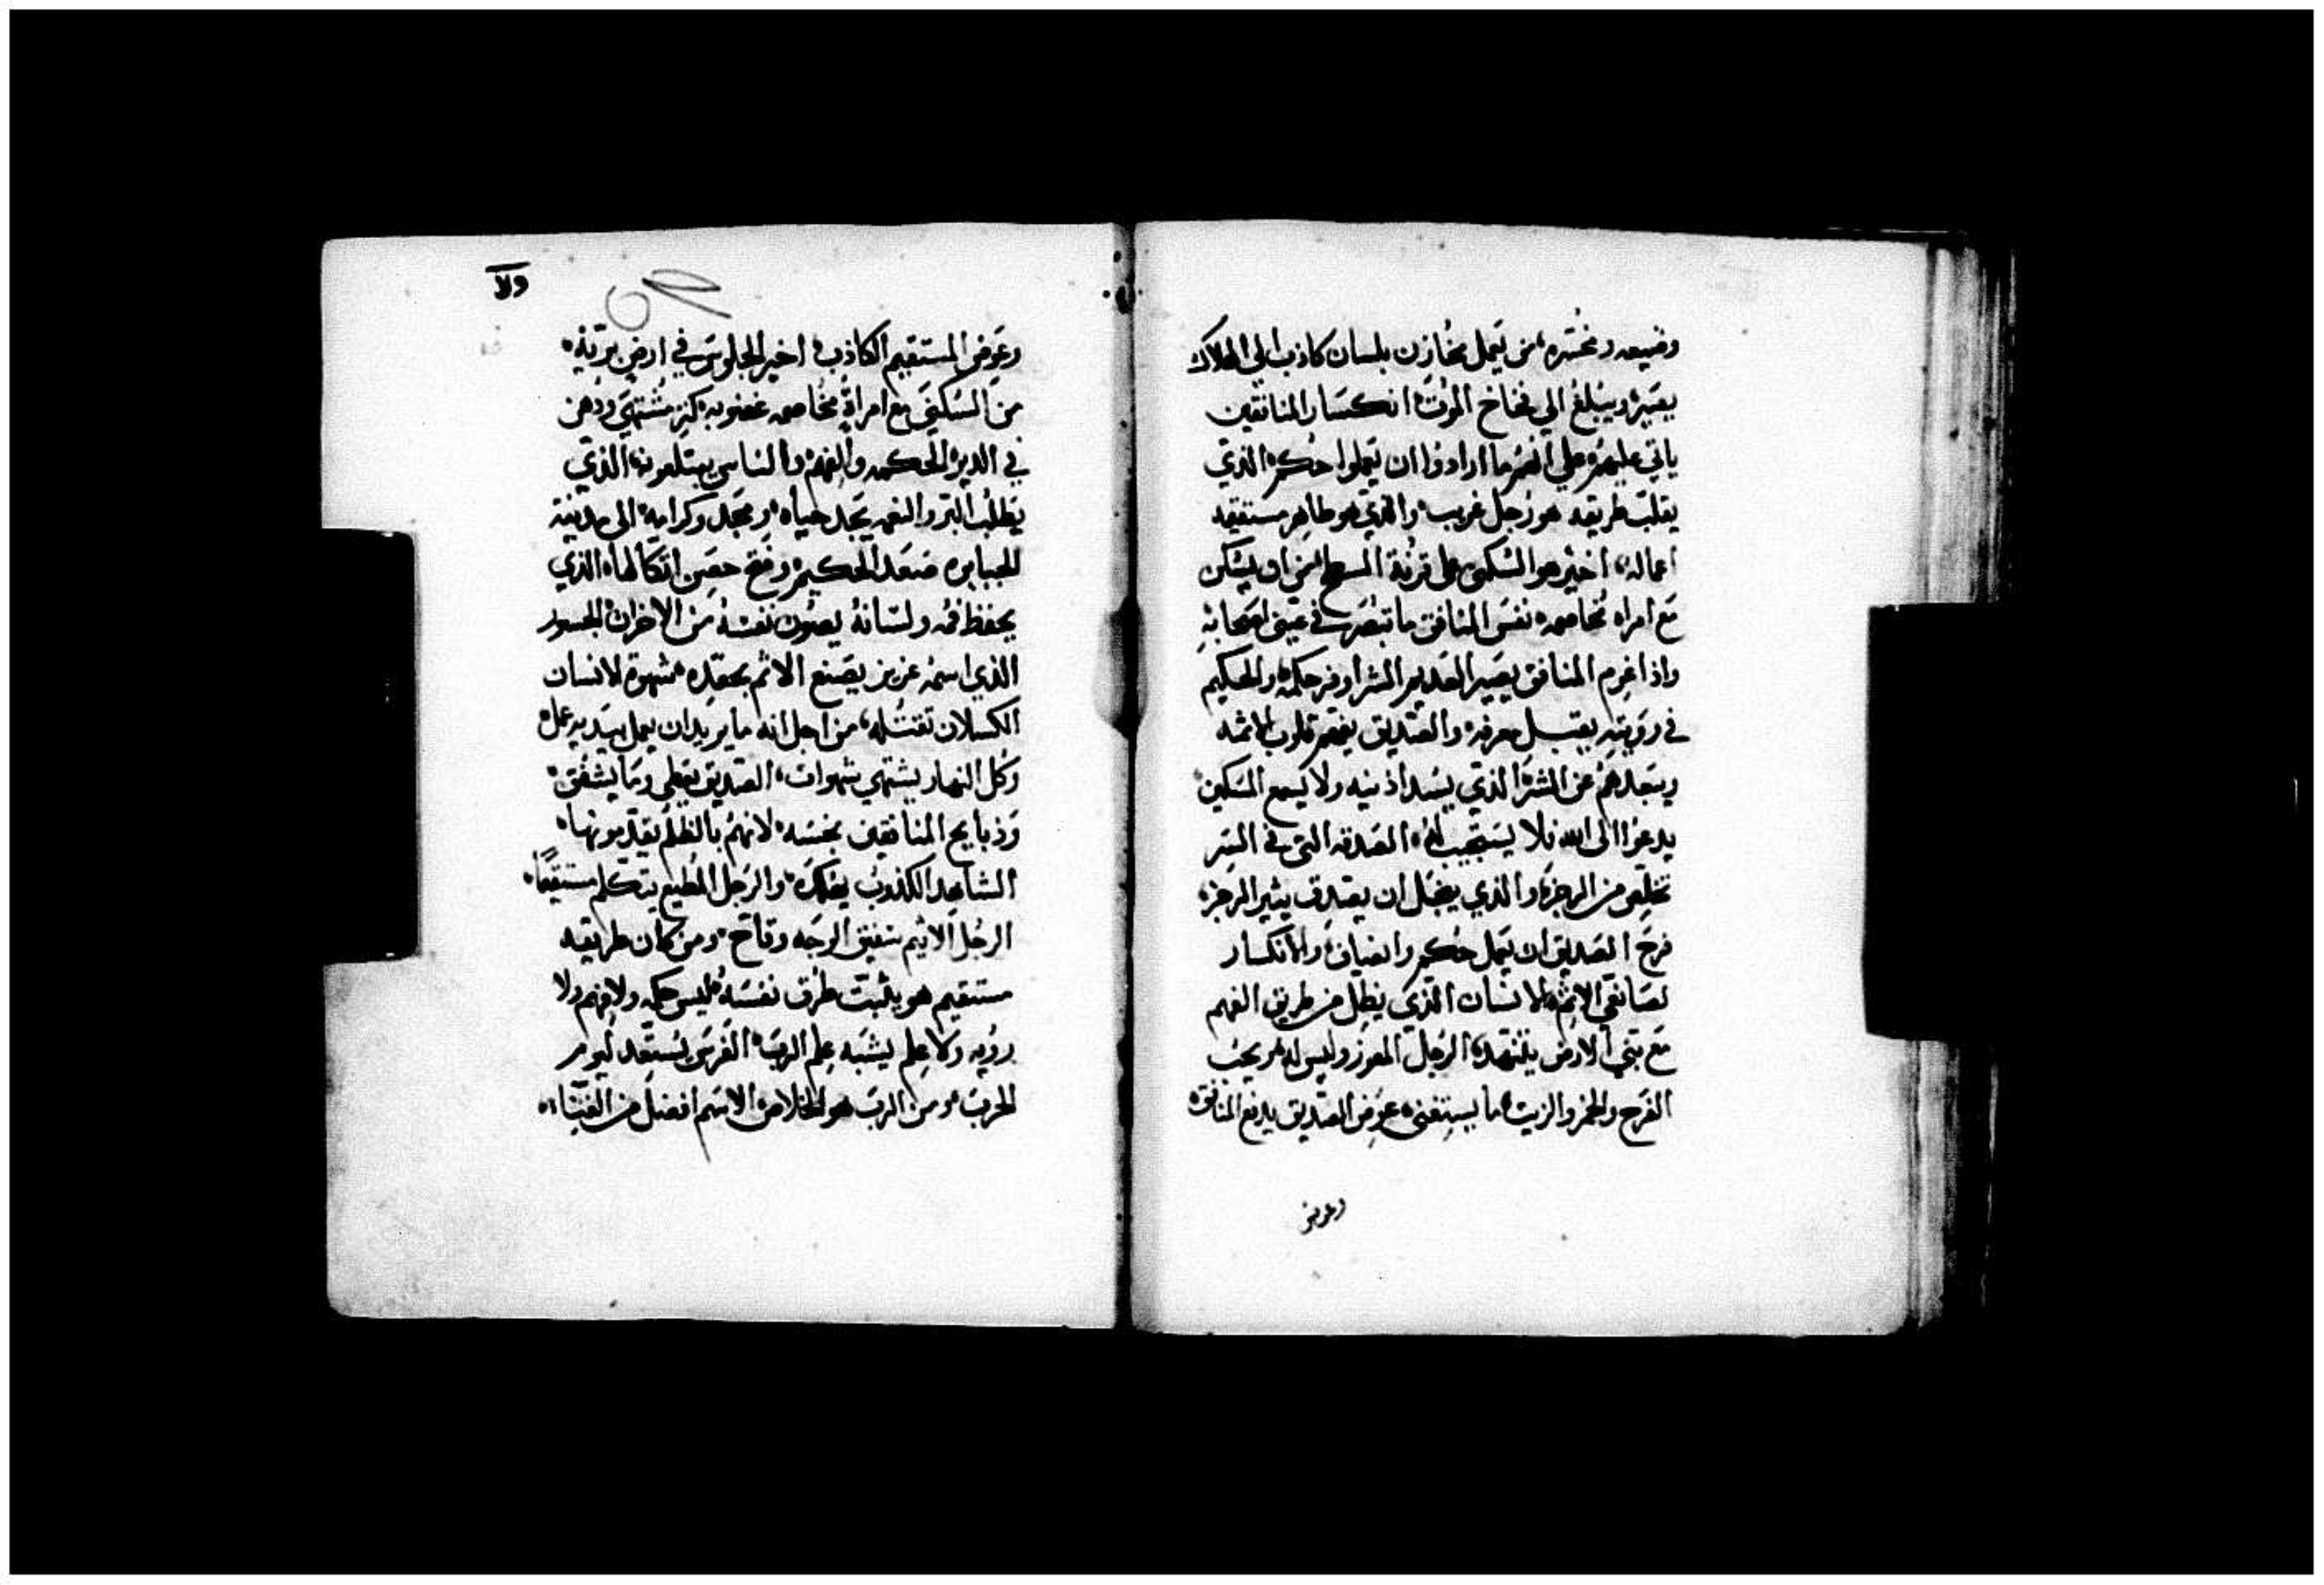 وضيعه ومخسره من يعمل مخازن بلسان كاذب الى الهلاك
يصير ويبلغ الي فخاخ الموت انكسار المنافقين
ياتي عليهم علي انهم ما ارادوا ان يعملوا حكم الذي
يقلب طريقه هو رجل غريب والذي هو طاهر مستقيمه
اعماله اخير هو السكنى على قرنة السطح من ان يسكن
مع امراه مخاصمه نفس المنافق ما تبصر في عيني اصحابه
واذا غرم المنافق يصير العديم الشر اوفر حكمه والحكيم
في رويته يقبل معرفه والصديق يفهم قلوب الاثمه
ويبعدهم عن الشر الذي يسد اذنيه ولا يسمع المسكين
يدعوا الى الله فلا يستجيب له الصدقه التي في السر
تخلص من الرجز والذي يبخل ان يصدق يثير الرجز
فرح الصديق ان يعمل حكم وانصاف والانكسار
لصانعي الاثم الانسان الذي يضل من طريق الفهم
مع بني الارض يتنهد الرجل المعوز وليس له هو يحب
الفرح والخمر والزيت ما يستغني عوض الصديق يدفع المنافق
وعوض
ولا
وعوض المستقيم الكاذب اخير الجلوس في ارض بريه
من السكنى مع امراة مخاصمه غضوبه كنز مشتهي ودهن
في الدير الحكمه والفهم والناس يبتلعونه الذي
يطلب البر والنعمه يجد حياه ومجد وكرامه الى مدينة
الجبابره صعد الحكيم وفتح حصن اتكالها الذي
يحفظ فمه ولسانه يصون نفسه من الاحزان الجسور
الذي اسمه عزيز يصنع الاثم بحقده شهوة الانسان
الكسلان تقتله من اجل انه ما يريدان يعمل بيديه عمل
وكل النهار يشتهي شهوات الصديق يعطي وما يشفق
وذبايح المنافقين نجسه لانهم بالظلم يقدمونها
الشاهد الكذوب يهلك والرجل المطيع يتكلم مستقيما
الرجل الاثيم صفيق الوجه وقاح ومن كان طريقه
مستقيم هو يثبت طرق نفسه ليس حكمه ولا فهم ولا
رويه ولا علم يشبه علم الرب الفرس يستعد ليوم
الحرب ومن الرب هو الخلاص الاسم افضل من الغناء